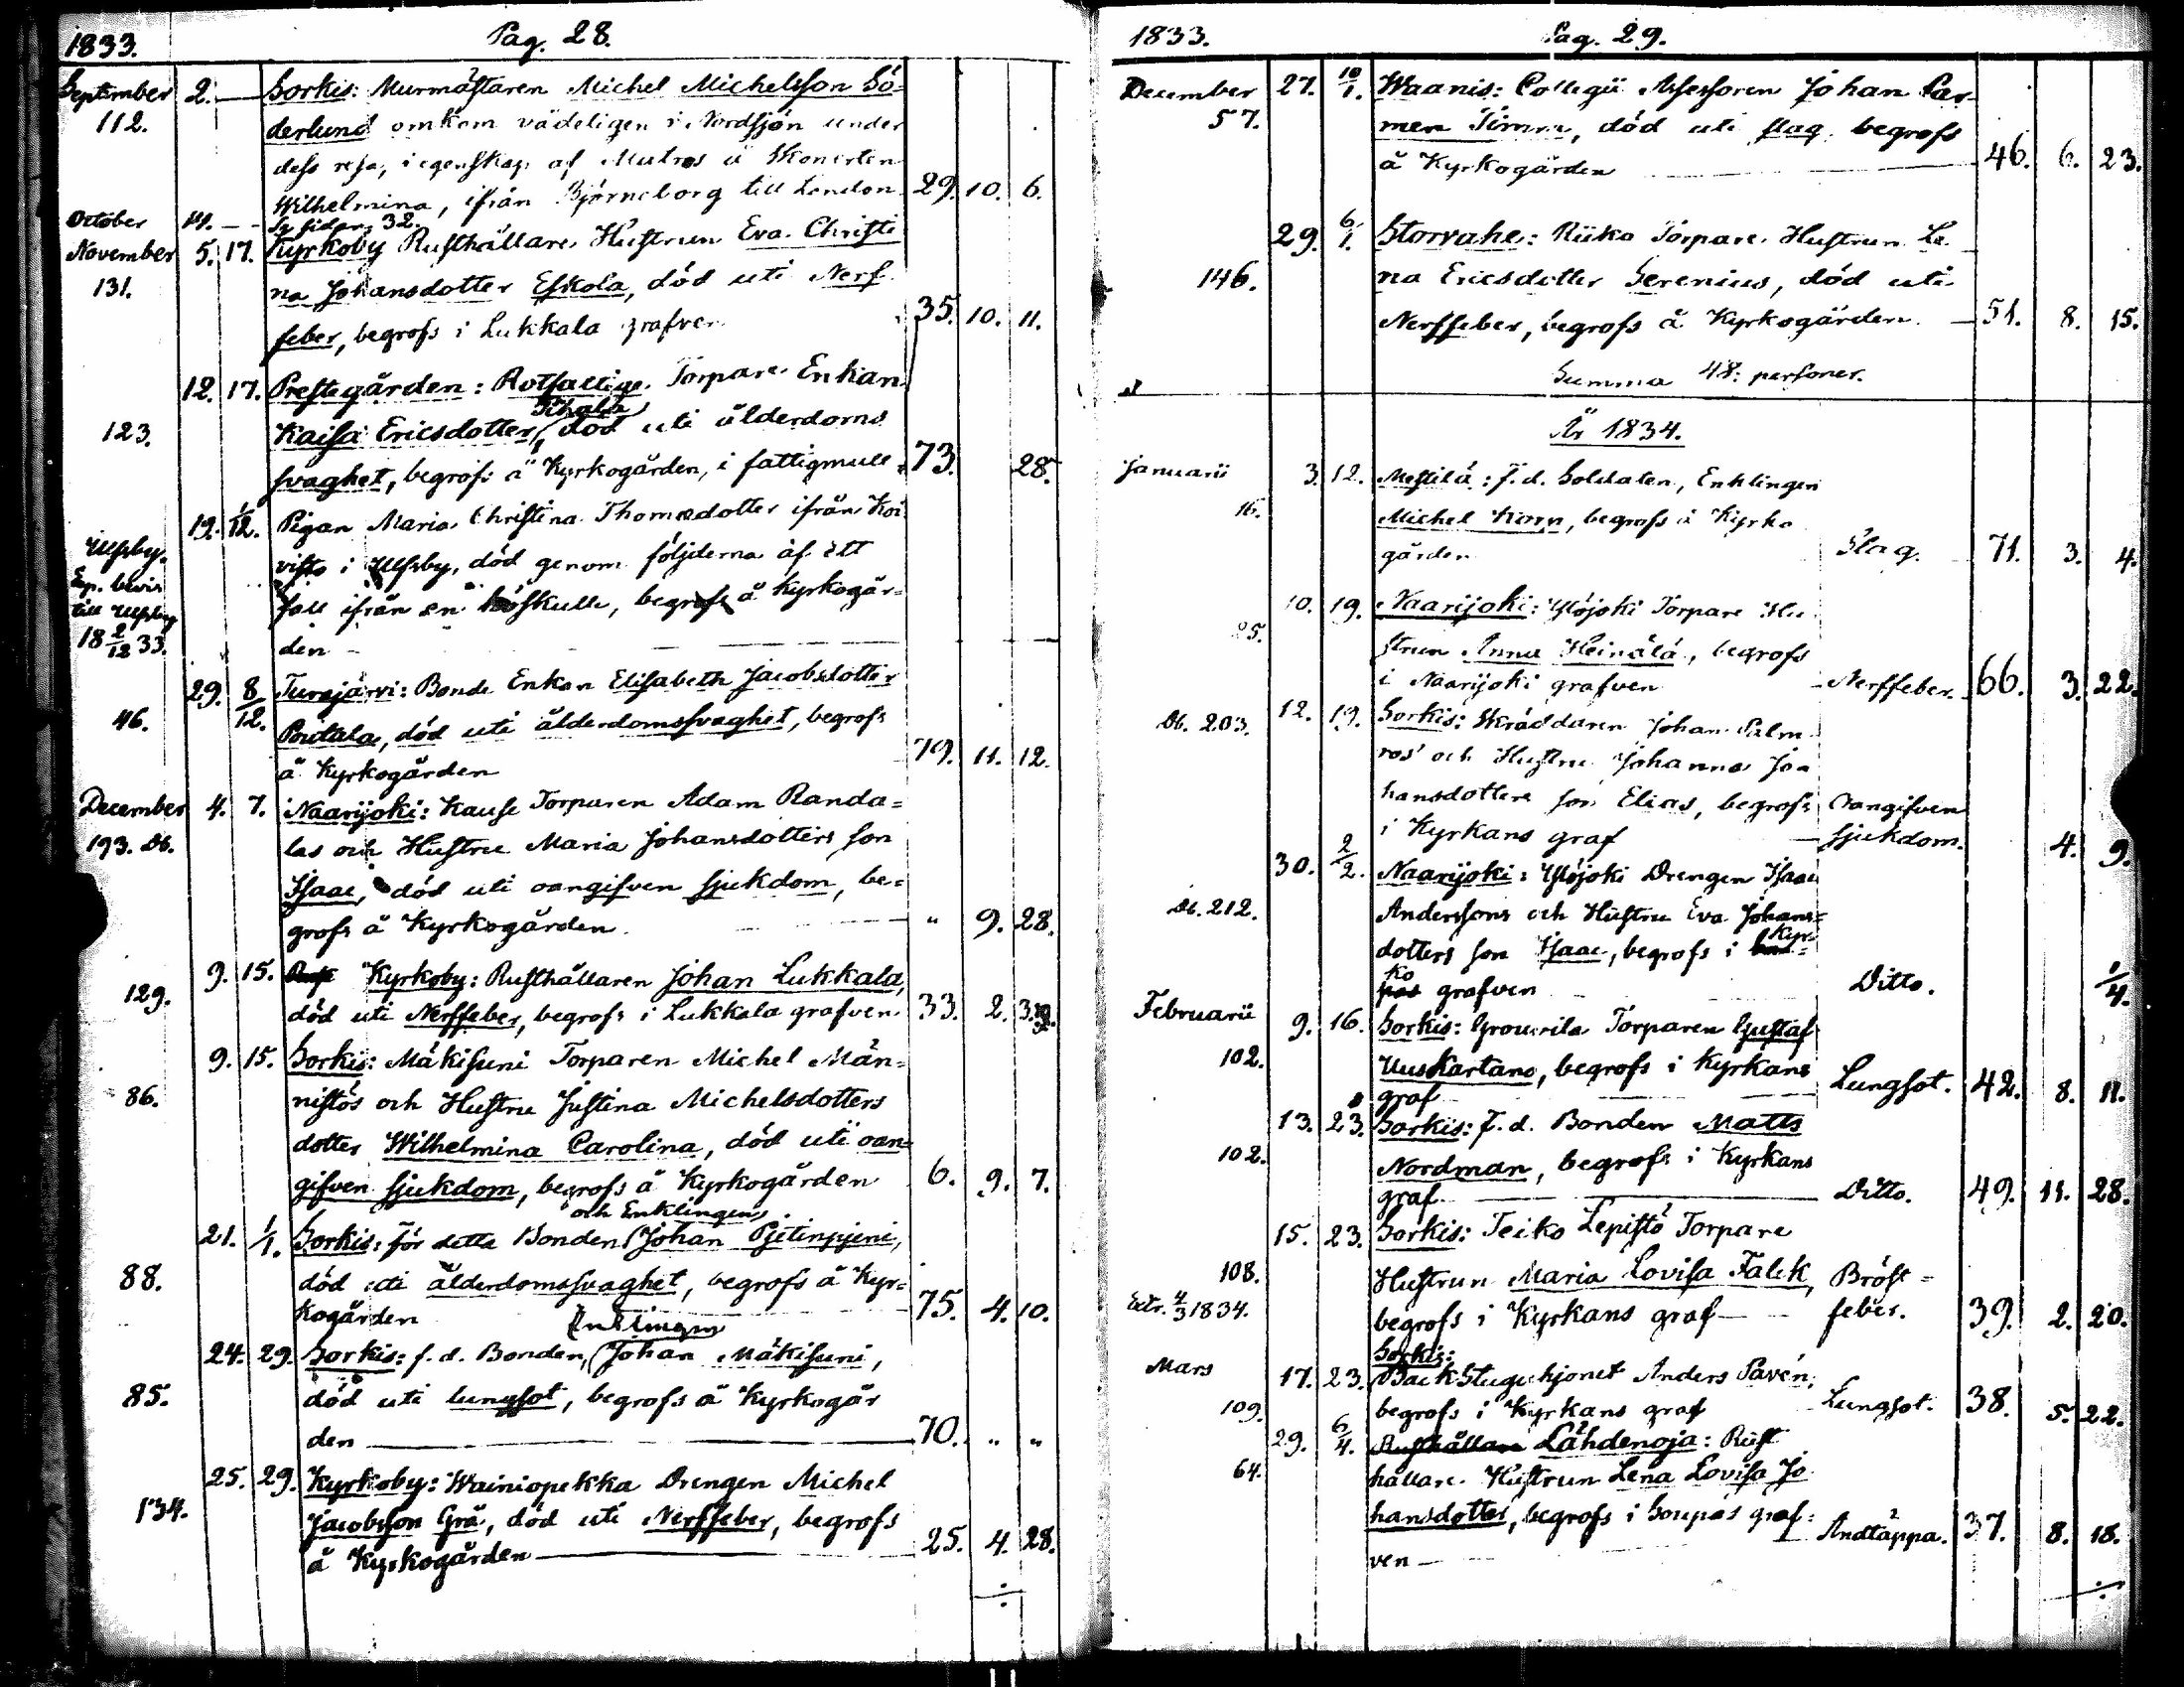 1833. Pag. 28.
September 2. — Sorkis: Murmästaren Michel Michelsson Sö=
112. derlund omkom vådeligen i Nordsjön under
dess resa, i egenskap af Matros å Skonerten
Wilhelmina, ifrån Björneborg till London 29. 10. 6.
October 14. — Se sidan 32.
November 5. 17. Kyrkoby Rusthållare Hustrun Eva Christi
131. na Johansdotter Eskola, död uti Nerf
feber, begrofs i Lukkala grafven 35. 10. 11.
12. 17. Prestegården: Rotfattige Torpare Enkan
123. Kaisa Ericsdotter, död uti ålderdoms
svaghet, begrofs å Kyrkogården, i fattigmull 73. 28.
19. 1/12. Pigan Maria Christina Thomædotter ifrån Koi
Ulfsby. visto i Ulfsby, död genom följderna af ett
Exp. bevis fall ifrån en höskulle, begrofs å Kyrkogår=
till Ulfsby
18 2/12 33. den
29. 8/12. Turajärvi: Bonde Enkan Elisabeth Jacobsdotter
46. Poutala, död uti ålderdomssvaghet, begrofs
å Kyrkogården 79. 11. 12.
December 4. 7. Naarijoki: Kause Torparen Adam Randa=
193. Db. las och Hustru Maria Johansdotters son
Isaac, död uti oangifven sjukdom, be=
grofs å Kyrkogården " 9. 28.
9. 15. Kyrkoby: Rusthållaren Johan Lukkala,
129. död uti Nerffeber, begrofs i Lukkala grafven 33. 2.
9. 15. Sorkis: Mäkisuni Torparen Michel Män=
86. nistös och Hustru Justina Michelsdotters
dotter Wilhelmina Carolina, död uti oan=
gifven sjukdom, begrofs å Kyrkogården 6. 9. 7.
och Enklingen
21. 1/1. Sorkis: för detta Bonden Johan Pjetinpjeni,
88. död uti ålderdomssvaghet, begrofs å Kyr=
kogården 75. 4. 10.
Enklingen
24. 29. Sorkis: f. d. Bonden, Johan Mäkisuni,
85. död uti lungsot, begrofs å Kyrkogår
den 70. " "
25. 29. Kyrkoby: Wainiopekka Drengen Michel
134. Jacobsson Grå, död uti Nerffeber, begrofs
å Kyrkogården 25. 4. 28.
1833. Pag. 29.
December 27. 10/1. Waanis: Collegii Assessoren Johan Par
57. men Timm, död uti slag, begrofs
å Kyrkogården 46. 6. 23.
29. 6/1. Storvahe: Riiko Torpare Hustrun Le
146. na Ericsdotter Serenius, död uti
Nerffeber, begrofs å Kyrkogården 51. 8. 15.
Summa 48: personer.
År 1834.
Januarii 3. 12. Mestilä: f. d. Soldaten, Enklingen
16. Michel Korp, begrofs å Kyrko
gården Slag. 71. 3. 4.
10. 19. Naarijoki: Ylöjoki Torpare Hu
25. strun Anna Heinälä, begrofs
i Naarijoki grafven Nerffeber. 66. 3. 22.
Db. 203. 12. 19. Sorkis: Skräddaren Johan Palm
ros' och Hustru Johanna Jo
hansdotters son Elias, begrofs Oangifven
i Kyrkans graf sjukdom. 4. 9.
30. 2/2. Naarijoki: Ylöjoki Drengen Isaac
Db. 212. Anderssons och Hustru Eva Johans=
dotters son Isaac, begrofs i Kyr=
ko grafven Ditto. 1/4.
Februarii 9. 16. Sorkis: Torparen Gustaf
102. Uuskartano, begrofs i Kyrkans
graf Lungsot. 42. 8. 11.
13. 23. Sorkis: f. d. Bonden Matts
102. Nordman, begrofs i Kyrkans
graf Ditto. 49. 11. 28.
15. 23. Sorkis: Teiko Lepistö Torpare
108. Hustrun Maria Lovisa Falck, Bröst=
Extr. 4/3 1834. begrofs i Kyrkans graf feber. 39. 2. 20.
Sorkis:
Mars 17. 23. Backstuguhjonet Anders Pavén,
109. begrofs i Kyrkans graf Lungsot. 38. 5. 22.
29. 6/4. Rusthållare Lähdenoja: Rust
64. hållare Hustrun Lena Lovisa Jo
hansdotter, begrofs i Soupas graf=
ven Andtäppa. 37. 8. 18.